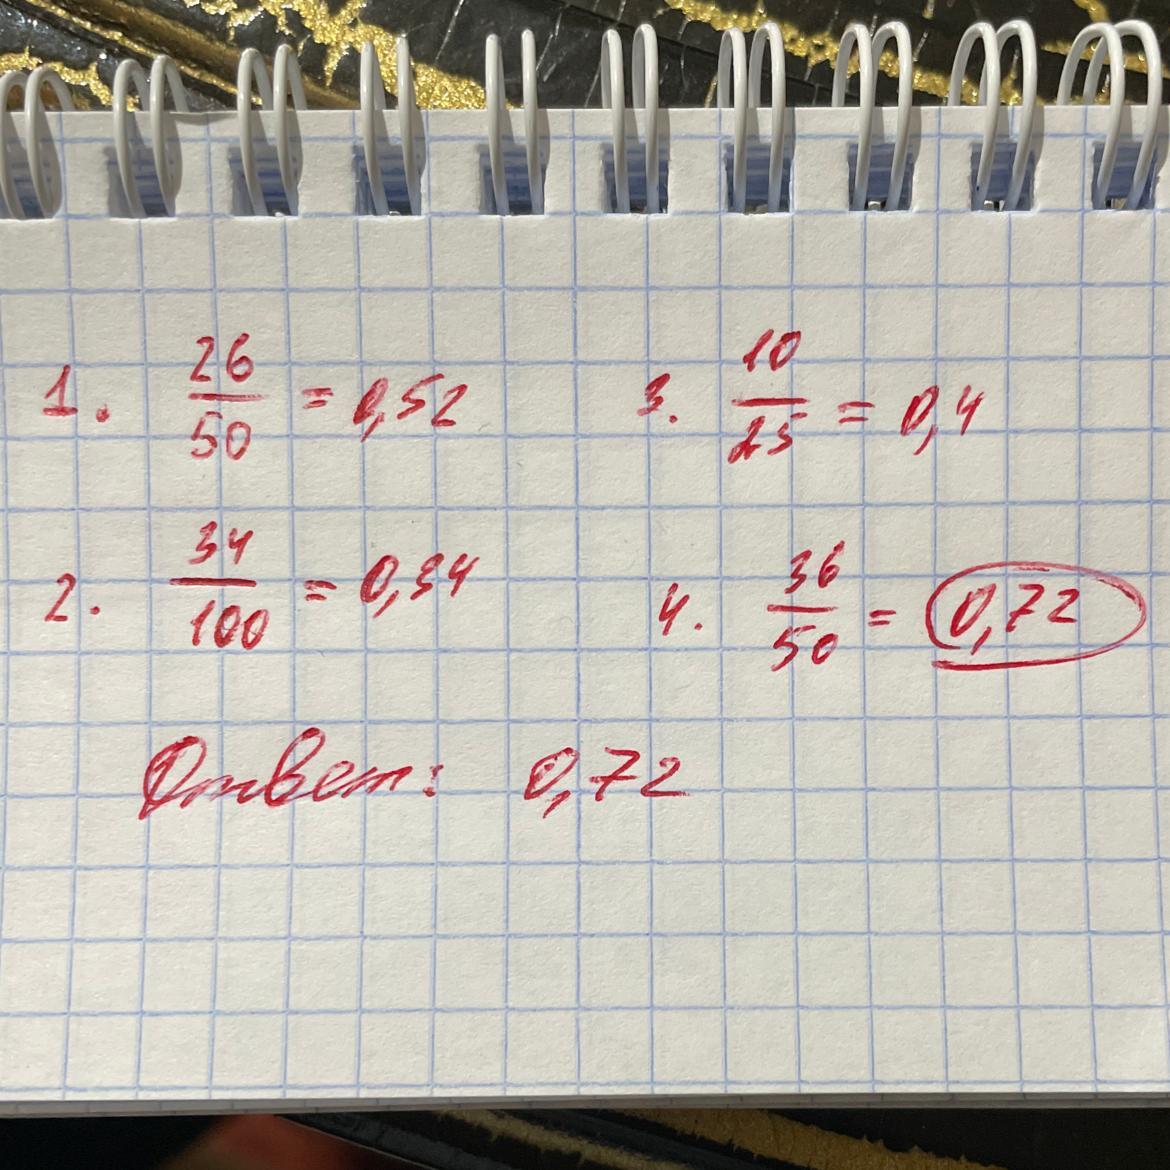 1. 26/50 = 0,52
2. 34/100 = 0,34
3. 10/25 = 0,4
4. 36/50 = 0,72
Ответ: 0,72